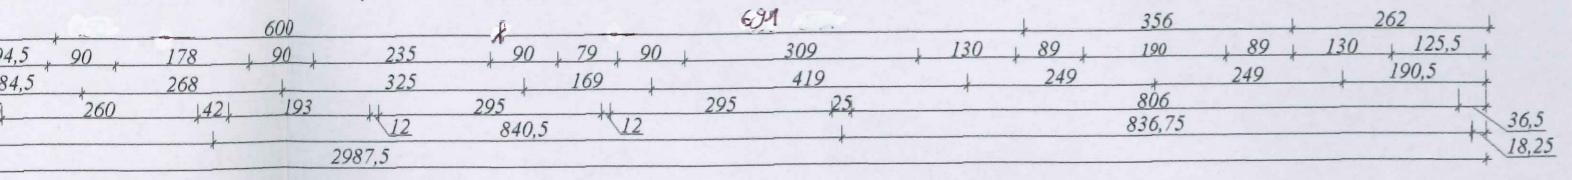 600 691 356 262
94,5 90 178 90 235 90 79 90 309 130 89 190 89 130 125,5
84,5 268 325 169 419 249 249 190,5
260 42 193 295 295 25 806
12 840,5 12 836,75 36,5
2987,5 18,25